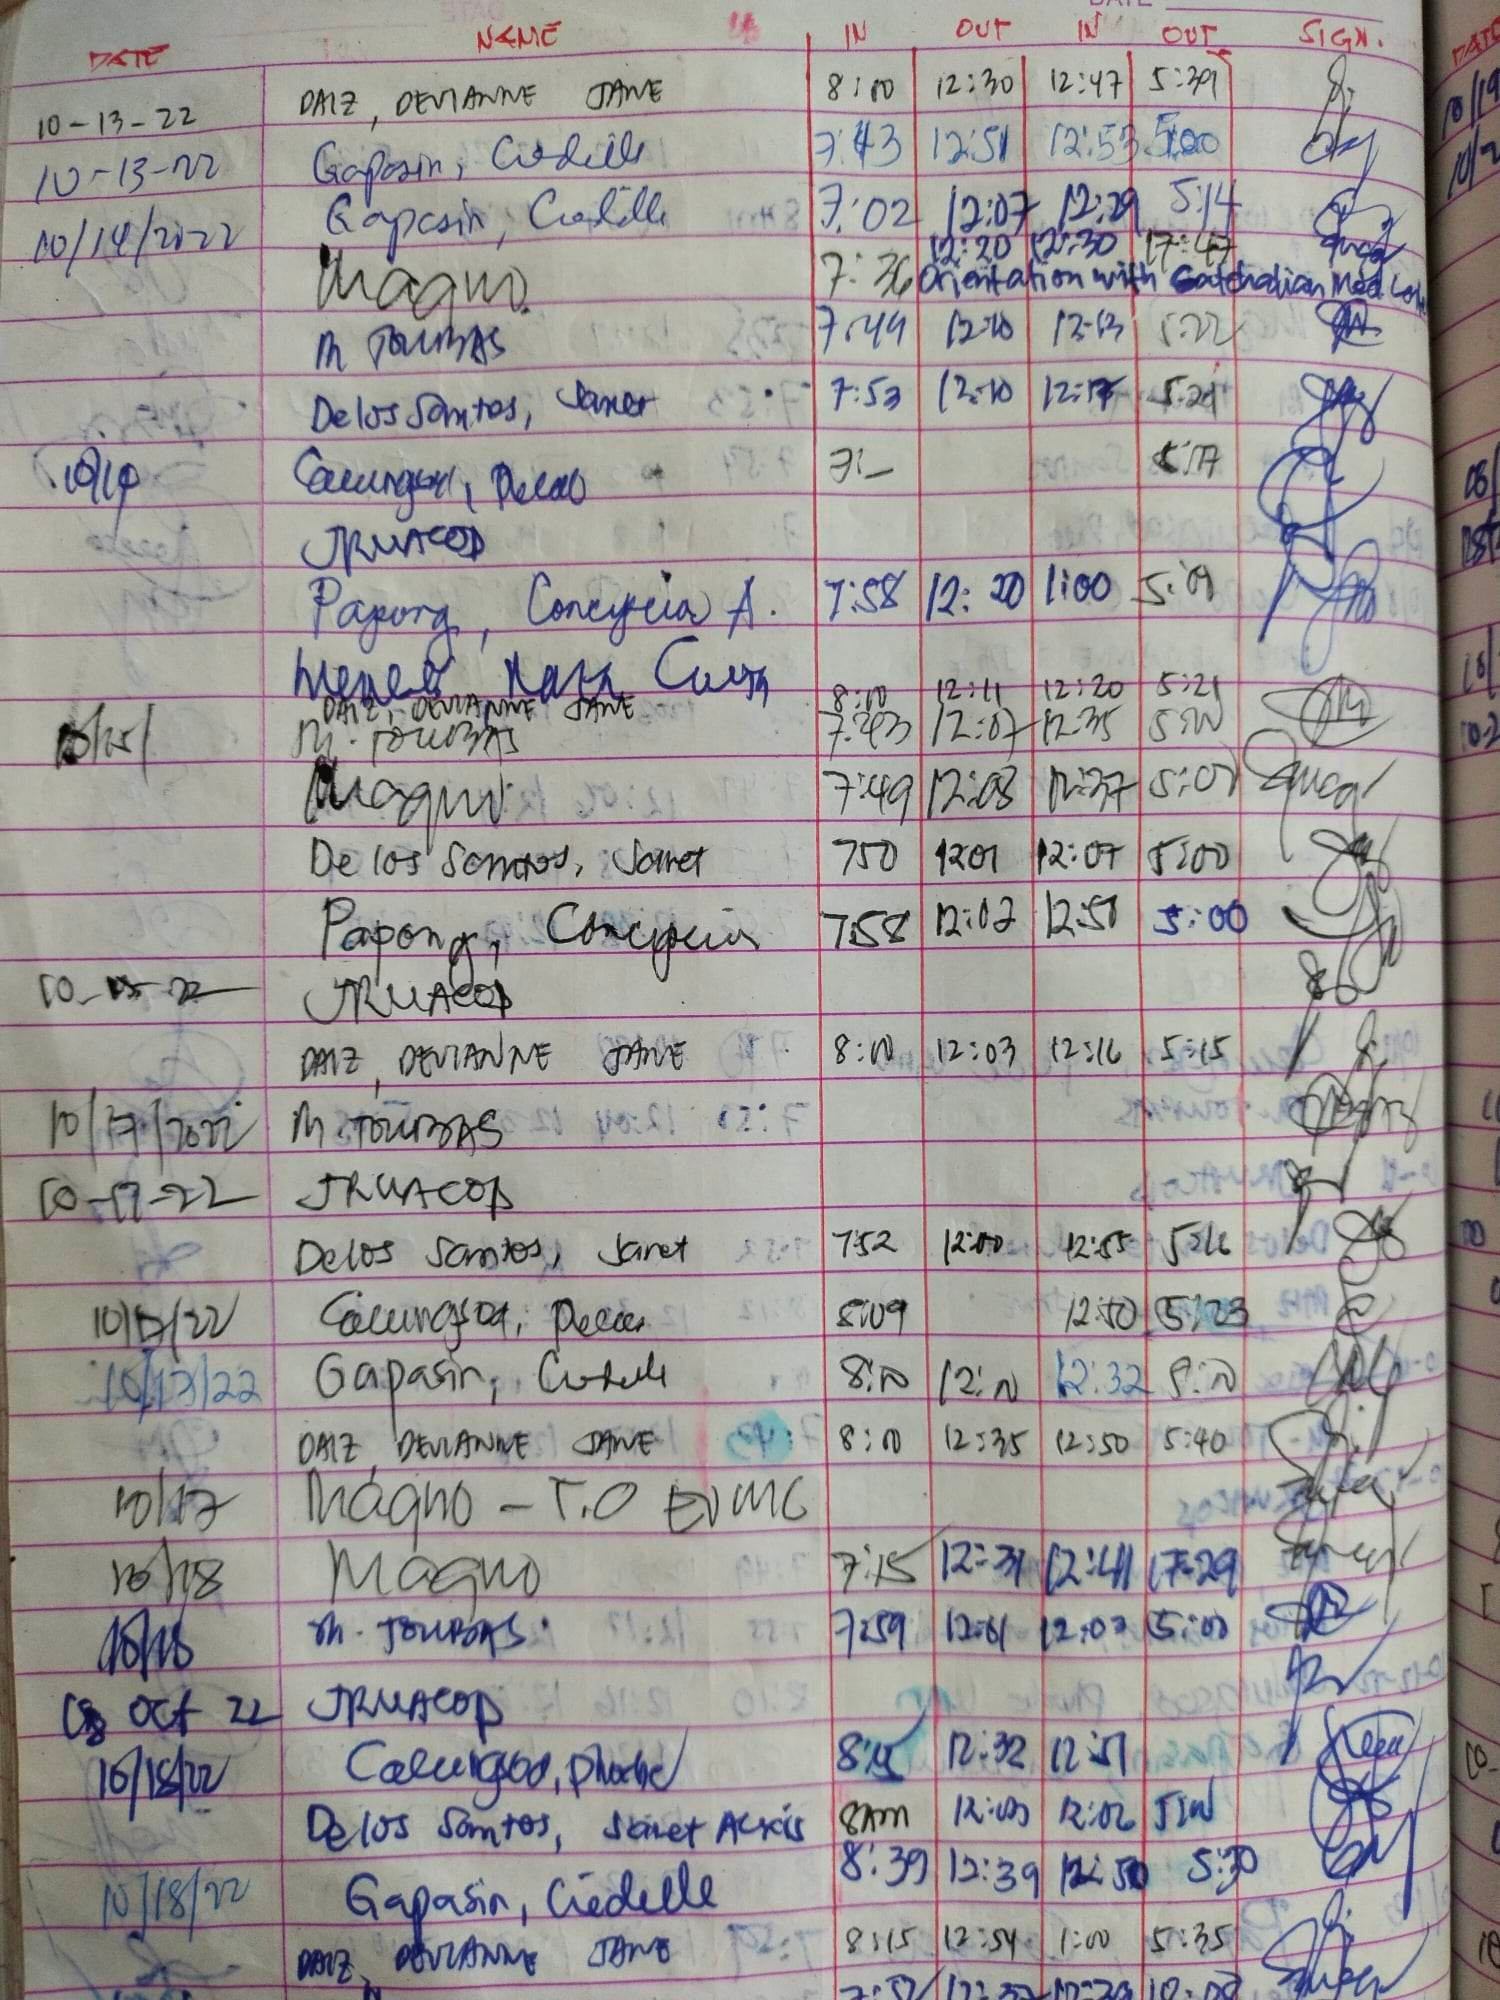 DATE NAME IN OUT IN OUT SIGN.
10-13-22 DAIZ, DEVIANNE JANE 8:00 12:30 12:47 5:39
10-13-22 Gapasin, Ciedelle 7:43 12:51 12:53 5:00
10/14/2022 Gapasin, Ciedelle 7:02 12:07 12:29 5:14
12:20 12:30 17:47
Magno 7:36 Orientation with Gatchalian Med
M TOLIBAS 7:49 12:10 12:13 5:22
De los Santos, Janet 7:53 12:10 12:17 5:21
10/14 7:- 5:17
JRMACOP
Papong, Concepcion A. 7:58 12:20 1:00 5:09
DAIZ, DEVIANNE JANE 8:00 12:11 12:20 5:21
10/15/ M. TOLIBAS 7:43 12:07 12:35 5:00
Magno 7:49 12:08 12:37 5:07
De los Santos, Janet 750 1201 12:07 5:00
Papong, Concepcion 7:58 12:02 12:50 5:00
10-15-22 JRMACOP
DAIZ, DEVIANNE JANE 8:00 12:03 12:16 5:15
10/17/2022 M TOLIBAS
10-17-22 JRMACOP
De los Santos, Janet 7:52 12:00 12:55 5:16
10/17/22 8:09 12:50 5:23
10/17/22 Gapasin, Ciedelle 8:00 12:00 12:32 5:00
DAIZ, DEVIANNE JANE 8:00 12:35 12:50 5:40
10/17 Magno - T.O EVMC
10/18 Magno 7:15 12:31 12:41 17:29
10/18 M. TOLIBAS 7:59 12:01 12:02 5:00
18 OCT 22 JRMACOP
10/18/22 Calungsod, Phoebe 8:15 12:32 12:51
De los Santos, Janet Alexis 8AM 12:00 12:02 5:00
10/18/22 Gapasin, Ciedelle 8:39 12:39 12:50 5:30
DAIZ, DEVIANNE JANE 8:15 12:54 1:00 5:35